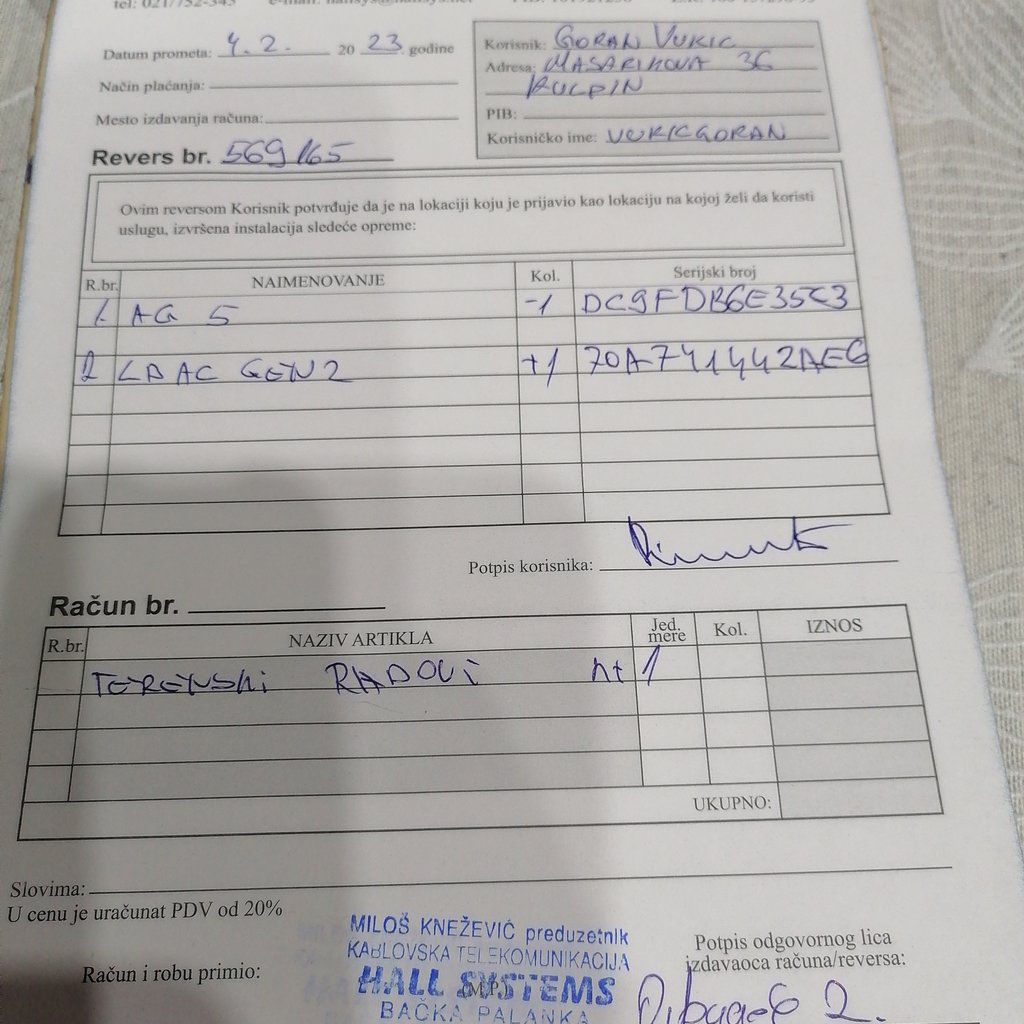 tel: 021/752-343
Datum prometa: 4.2. 2023. godine
Način plaćanja:
Mesto izdavanja računa:
Revers br. 569/165
Korisnik: GORAN VUKIC
Adresa: MASARIKOVA 36
KULPIN
PIB:
Korisničko ime: VUKICGORAN
Ovim reversom Korisnik potvrđuje da je na lokaciji koju je prijavio kao lokaciju na kojoj želi da koristi
uslugu, izvršena instalacija sledeće opreme:
R.br. NAIMENOVANJE Kol. Serijski broj
1. AG 5 -1 DC9FDB6E35C3
2 LBAC GEN2 +1 70A741442AE6
Potpis korisnika:
Račun br.
R.br. NAZIV ARTIKLA Jed. mere Kol. IZNOS
TERENSKI RADOVI ht 1
UKUPNO:
Slovima:
U cenu je uračunat PDV od 20%
Račun i robu primio:
MILOŠ KNEŽEVIĆ preduzetnik
KABLOVSKA TELEKOMUNIKACIJA
HALL SYSTEMS
(M.P.)
BAČKA PALANKA
Potpis odgovornog lica
izdavaoca računa/reversa: